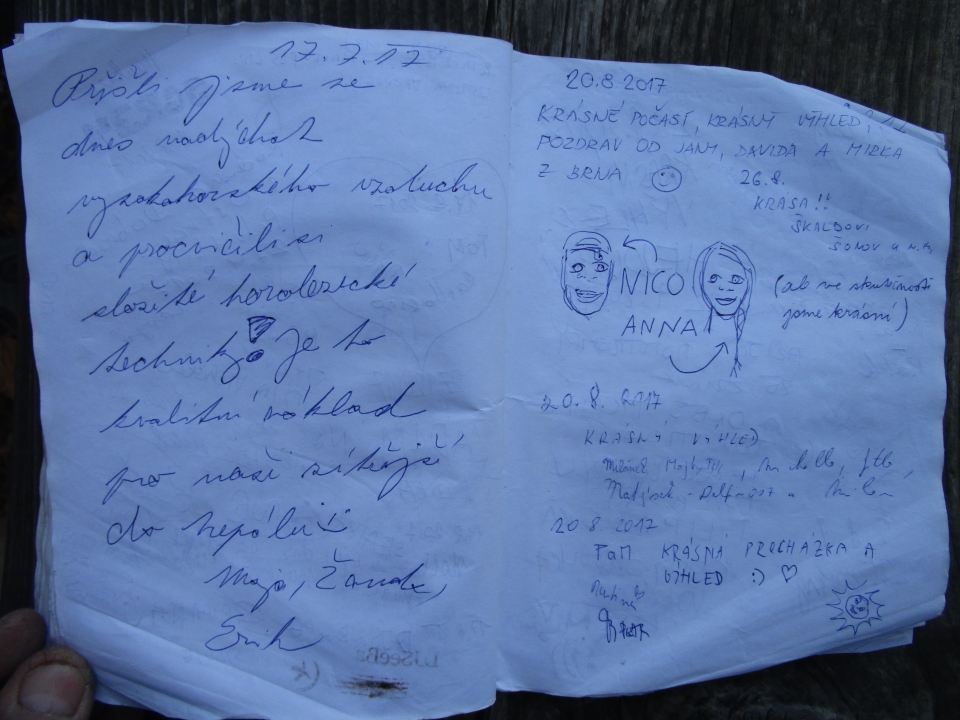 17.7.17
Přišli jsme se
dnes nadýchat
vysokohorského vzduchu
a procvičili si
složité horolezecké
techniky! Je to
kvalitní základ
pro naši zítřejší
do Nepálu
Erik
20.8.2017
KRÁSNÉ POČASÍ, KRÁSNÝ VÝHLED,
POZDRAV OD JANY, DAVIDA A MIRKA
Z BRNA
26.8.
KRÁSA!!
ŠKALDOVI
ŠONOV u N.
NICO
ANNA
(ale ve skutečnosti
jsme krásní)
20.8.2017
KRÁSNÝ VÝHLED
20.8 2017
KRÁSNÁ PROCHÁZKA A
VÝHLED :) ♡
Martina